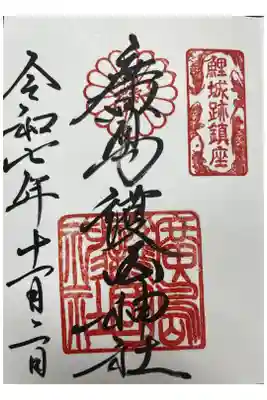 鯉城跡鎮座
廣島護国神社
廣島護國神社
令和七年十一月二日